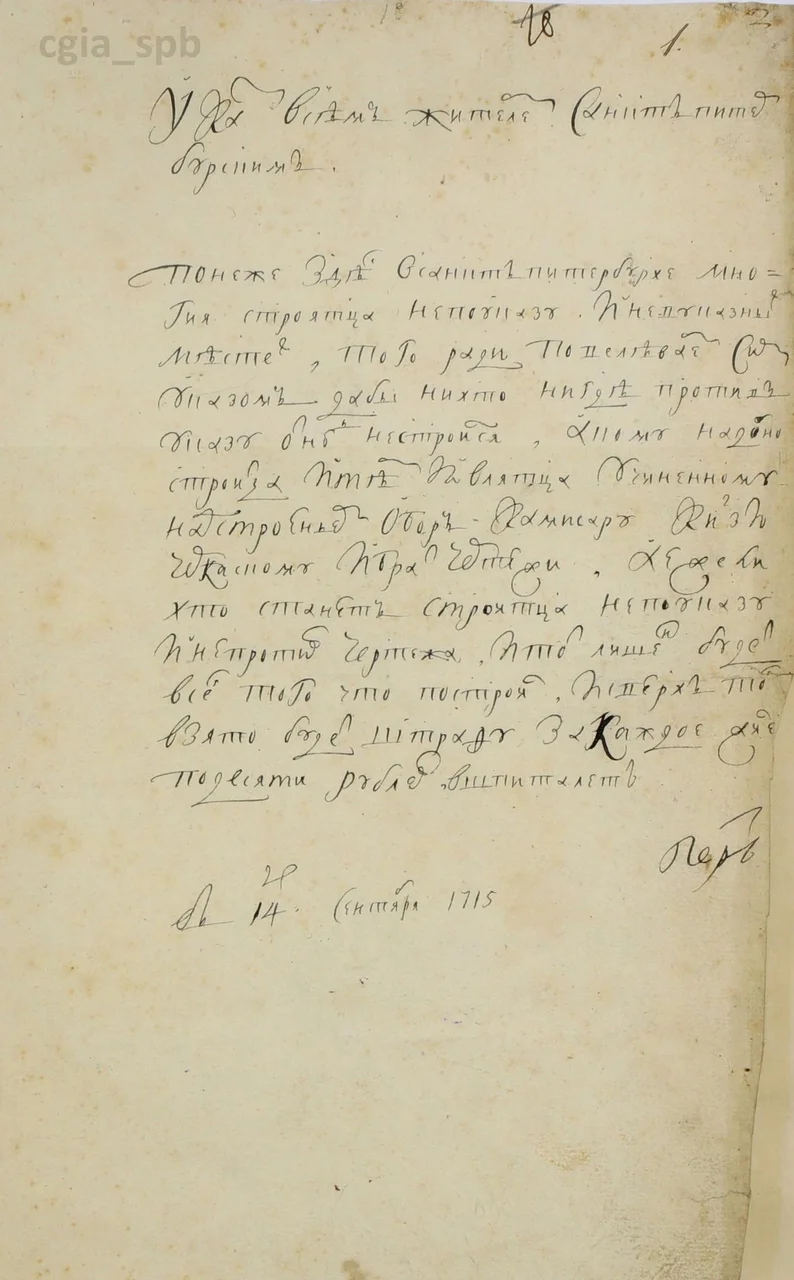 cgia_spb
18
1.
Указ всѣмъ жителем Санктъ питер
бурскимъ.
Понеже здѣс Всанктъ питербурхе мно=
гия строятца непоуказу. И невуказных
мѣстех, того ради повелѣвает сим
Указомъ дабы нихто нигдѣ противъ
указу онаго нестроился, а кому надобно
строитца и тѣ являтца Учиненному
надстроением Оберъ - Камисару Князь
Черкаскому И
хто станетъ строитца непоуказу
И непротив чертежа, И тот лишен будет
всего того что построят, И сверхъ того
взято будет штрафу За каждое
подесяти рублев, вшпиталетъ
Петръ
В 14 Сентября 1715